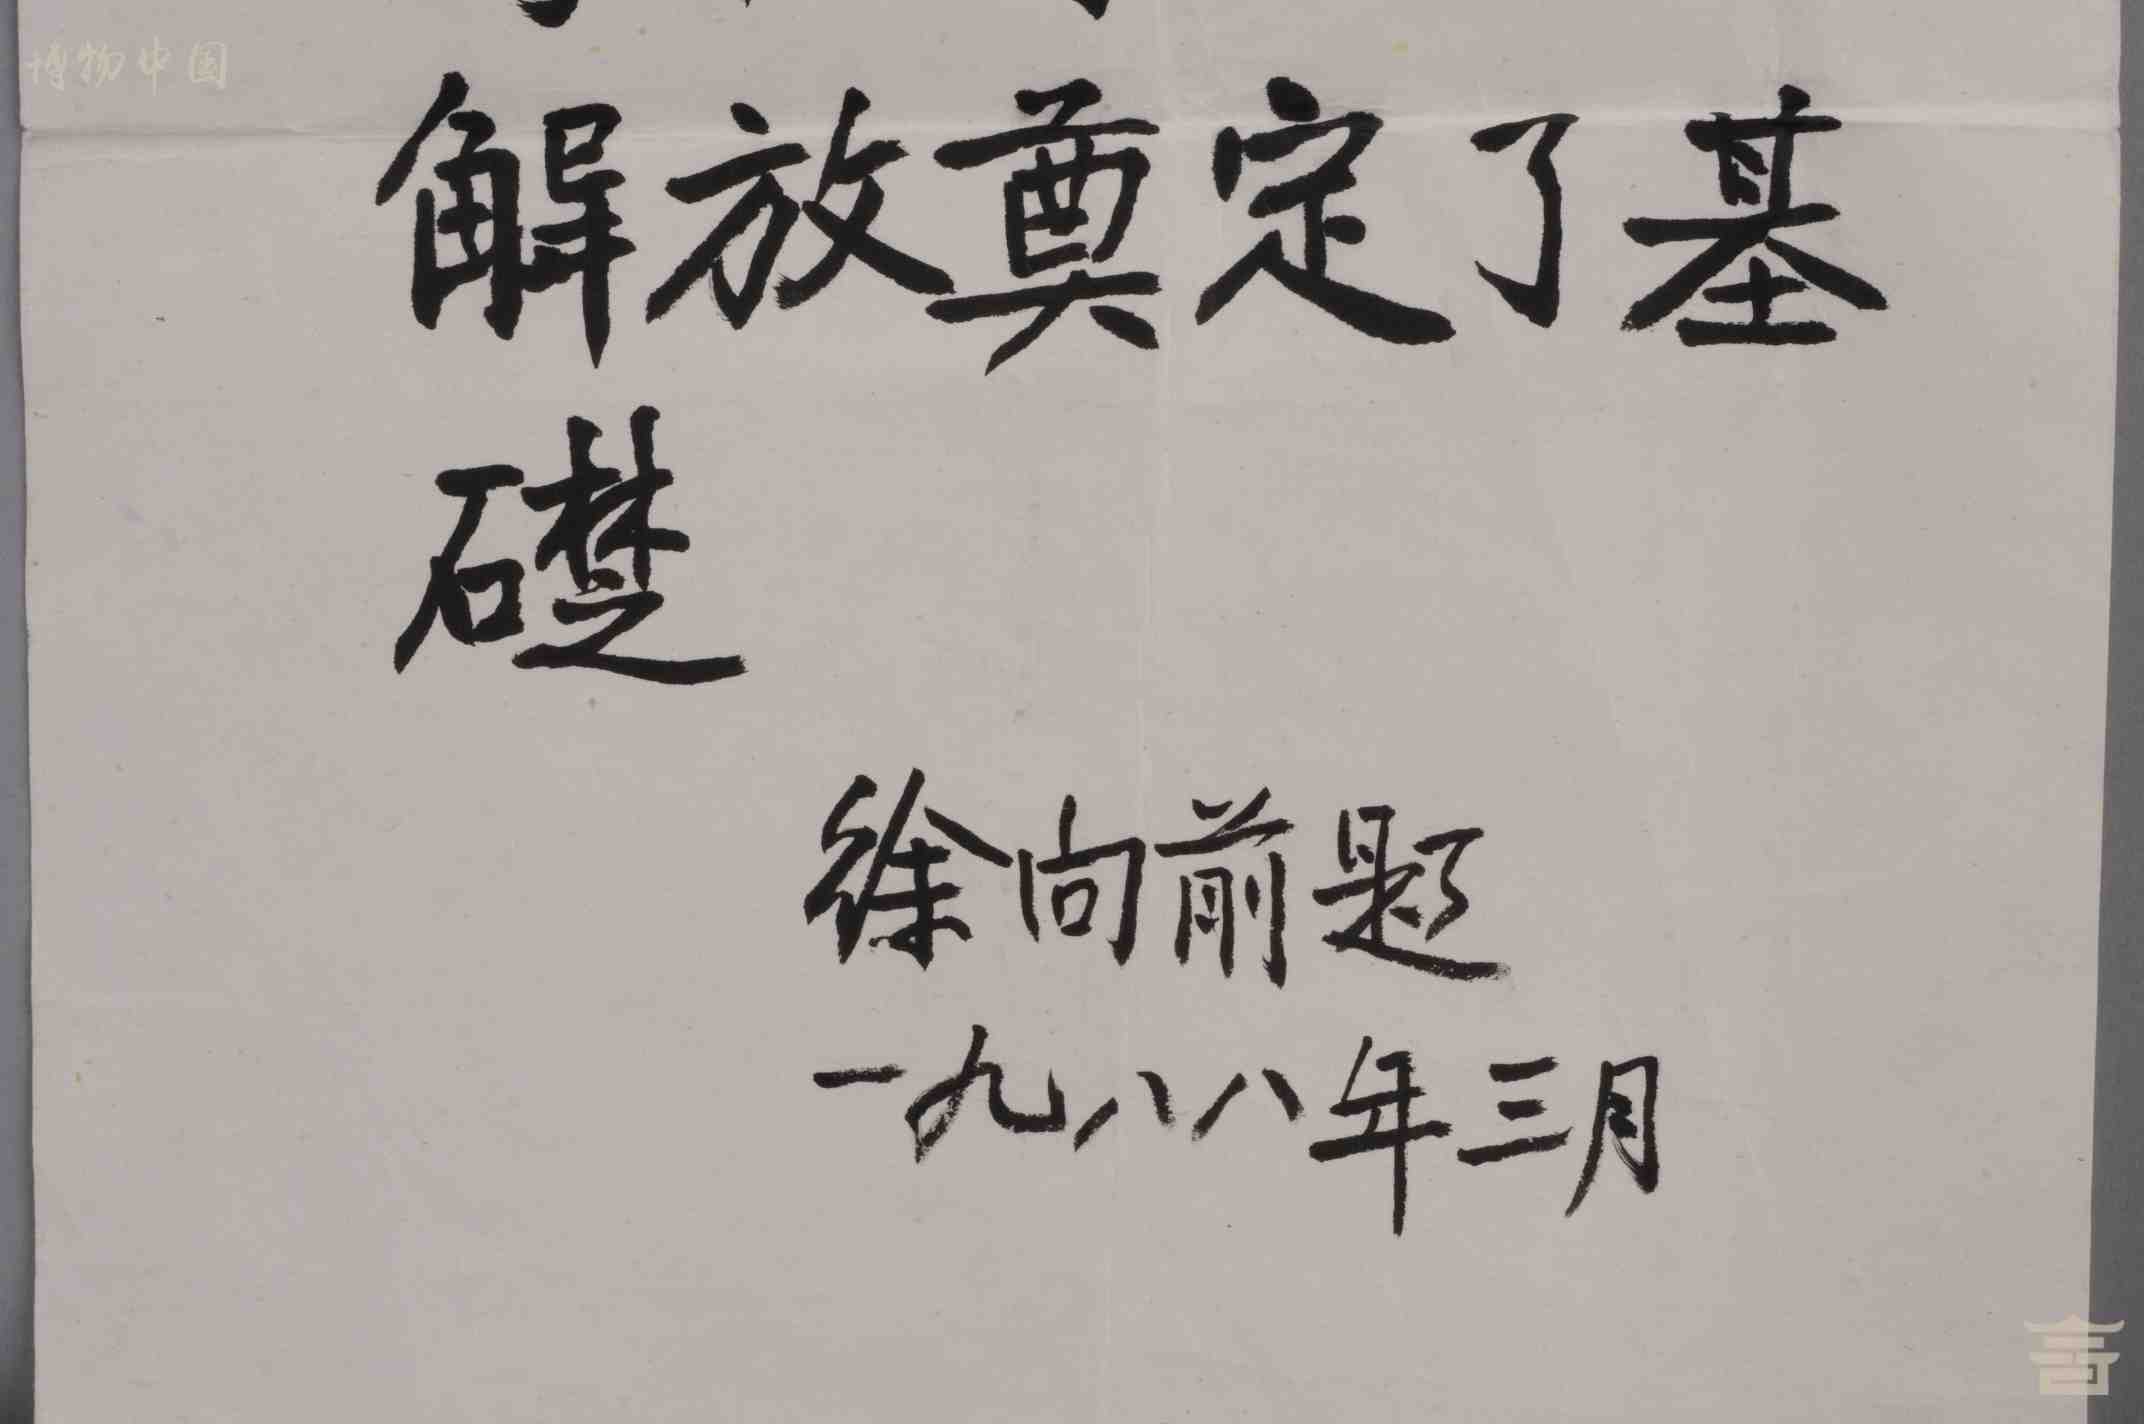 博物中国
解放奠定了基
礎
徐向前题
一九八八年三月